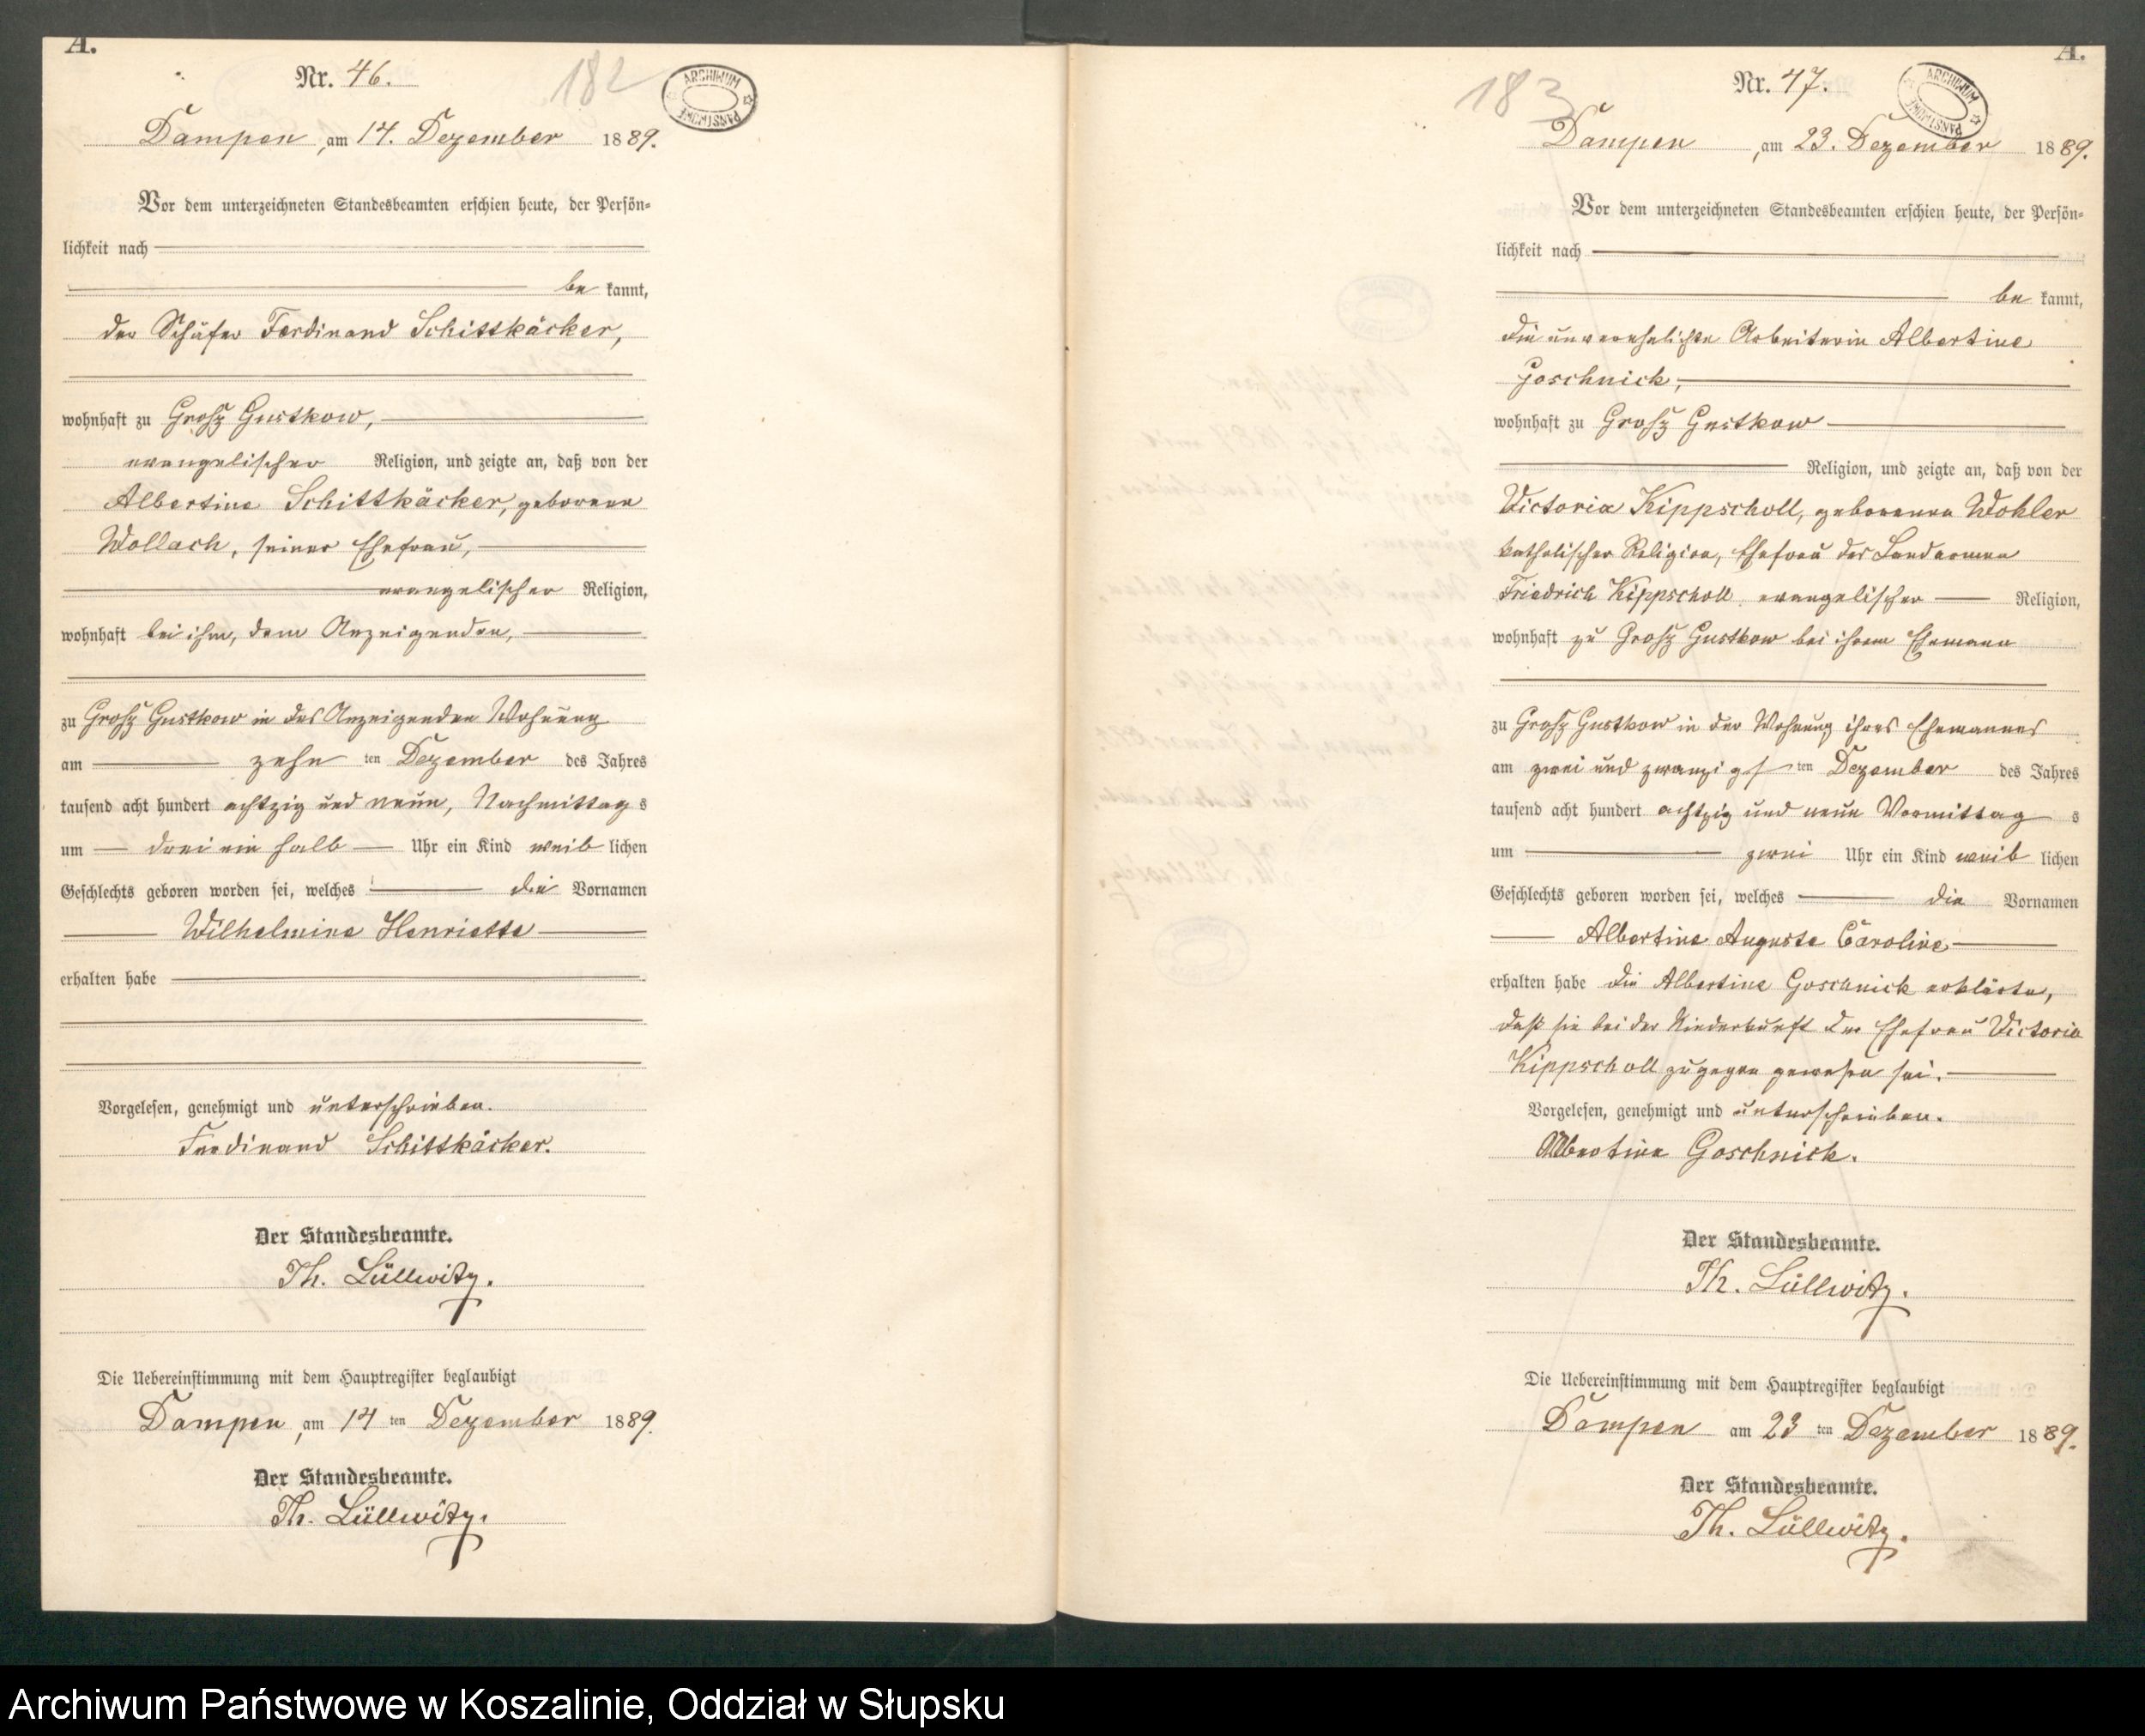 A.
Nr. 46.
182
ARCHIWUM PAŃSTWOWE
Dampen, am 14. Dezember 1889.
Vor dem unterzeichneten Standesbeamten erschien heute, der Persön=
lichkeit nach
be kannt,
der Schäfer Ferdinand Schittkäcker,
wohnhaft zu Grosz Gustkow,
evangelischer Religion, und zeigte an, daß von der
Albertine Schittkäcker, geborenen
Wollach, seiner Ehefrau,
evangelischer Religion,
wohnhaft bei ihm, dem Anzeigenden,
zu Grosz Gustkow in des Anzeigenden Wohnung
am zehn ten Dezember des Jahres
tausend acht hundert achtzig und neun, Nachmittag s
um drei ein halb Uhr ein Kind weib lichen
Geschlechts geboren worden sei, welches die Vornamen
Wilhelmine Henriette
erhalten habe
Vorgelesen, genehmigt und unterschrieben.
Ferdinand Schittkäcker.
Der Standesbeamte.
Th. Lüllwitz.
Die Uebereinstimmung mit dem Hauptregister beglaubigt
Dampen, am 14 ten Dezember 1889.
Der Standesbeamte.
Th. Lüllwitz.
A.
Nr. 47.
183
ARCHIWUM PAŃSTWOWE
Dampen, am 23. Dezember 1889.
Vor dem unterzeichneten Standesbeamten erschien heute, der Persön=
lichkeit nach
be kannt,
die unverehelichte Arbeiterin Albertine
Goschnick,
wohnhaft zu Grosz Gustkow
Religion, und zeigte an, daß von der
Victoria Kippscholl, geborenen Wohler
katholischer Religion, Ehefrau des Landarmen
Friedrich Kippscholl evangelischer Religion,
wohnhaft zu Grosz Gustkow bei ihrem Ehemann
zu Grosz Gustkow in der Wohnung ihres Ehemannes
am zwei und zwanzigs ten Dezember des Jahres
tausend acht hundert achtzig und neun Vormittag s
um zwei Uhr ein Kind weib lichen
Geschlechts geboren worden sei, welches die Vornamen
Albertine Auguste Caroline
erhalten habe die Albertine Goschnick erklärte,
daß sie bei der Niederkunft der Ehefrau Victoria
Kippscholl zugegen gewesen sei.
Vorgelesen, genehmigt und unterschrieben.
Albertine Goschnick.
Der Standesbeamte.
Th. Lüllwitz.
Die Uebereinstimmung mit dem Hauptregister beglaubigt
Dampen am 23 ten Dezember 1889.
Der Standesbeamte.
Th. Lüllwitz.
Archiwum Państwowe w Koszalinie, Oddział w Słupsku